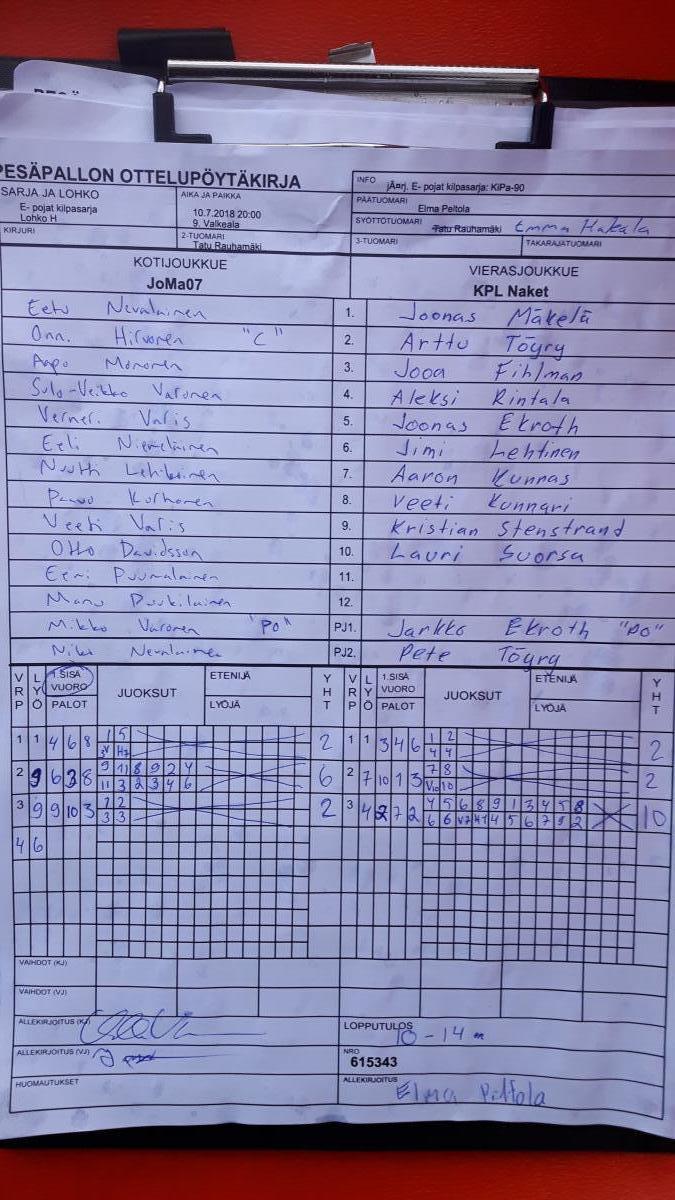 PESÄPALLON OTTELUPÖYTÄKIRJA
SARJA JA LOHKO
E- pojat kilpasarja
Lohko H
AIKA JA PAIKKA
10.7.2018 20:00
9. Valkeala
KIRJURI
2-TUOMARI
Tatu Rauhamäki
INFO
jÃ¤rj. E- pojat kilpasarja: KiPa-90
PÄÄTUOMARI
Elma Peltola
SYÖTTÖTUOMARI
Tatu Rauhamäki Emma Hakala
3-TUOMARI
TAKARAJATUOMARI
KOTIJOUKKUE
JoMa07
VIERASJOUKKUE
KPL Naket
Eetu Nevalainen 1. Joonas Mäkelä
Onni Hirvonen "C" 2. Arttu Töyry
Aapo Mononen 3. Jooa Fihlman
Sulo-Veikko Varonen 4. Aleksi Rintala
Verneri Valis 5. Joonas Ekroth
Eeli Niemeläinen 6. Jimi Lehtinen
Nuutti Lehikoinen 7. Aaron Kunnas
Paavo Korhonen 8. Veeti Kunnari
Veeti Valis 9. Kristian Stenstrand
Otto Davidsson 10. Lauri Suorsa
Eemi Puumalainen 11.
Manu Puukilainen 12.
Mikko Varonen "PO" PJ1. Jarkko Ekroth "PO"
Niko Nevalainen PJ2. Pete Töyry
VRP LYÖ 1.SISÄ VUORO PALOT JUOKSUT ETENIJÄ LYÖJÄ YHT VRP LYÖ 1.SISÄ VUORO PALOT JUOKSUT ETENIJÄ LYÖJÄ YHT
1 1 4 6 8 1 5 2 1 1 3 4 6 1 2 2
4 4
2 9 6 3 8 9 11 8 9 2 4 6 2 7 10 1 3 7 8 2
11 3 2 3 4 6 10
3 9 9 10 3 1 2 2 3 4 2 7 2 4 5 6 8 9 1 3 4 5 8 10
3 3 6 6 4 5 6 7 9 2
4 6
VAIHDOT (KJ)
VAIHDOT (VJ)
ALLEKIRJOITUS (KJ)
LOPPUTULOS
10-14
ALLEKIRJOITUS (VJ)
NRO
615343
HUOMAUTUKSET
ALLEKIRJOITUS
Elma Peltola